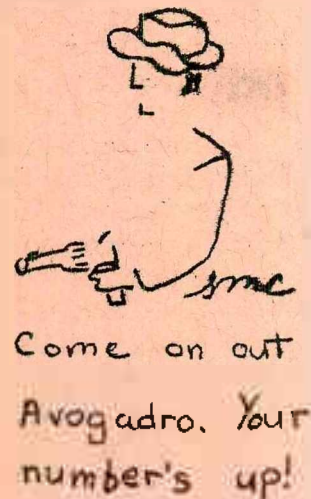 smc
Come on out
Avogadro. Your
number's up!